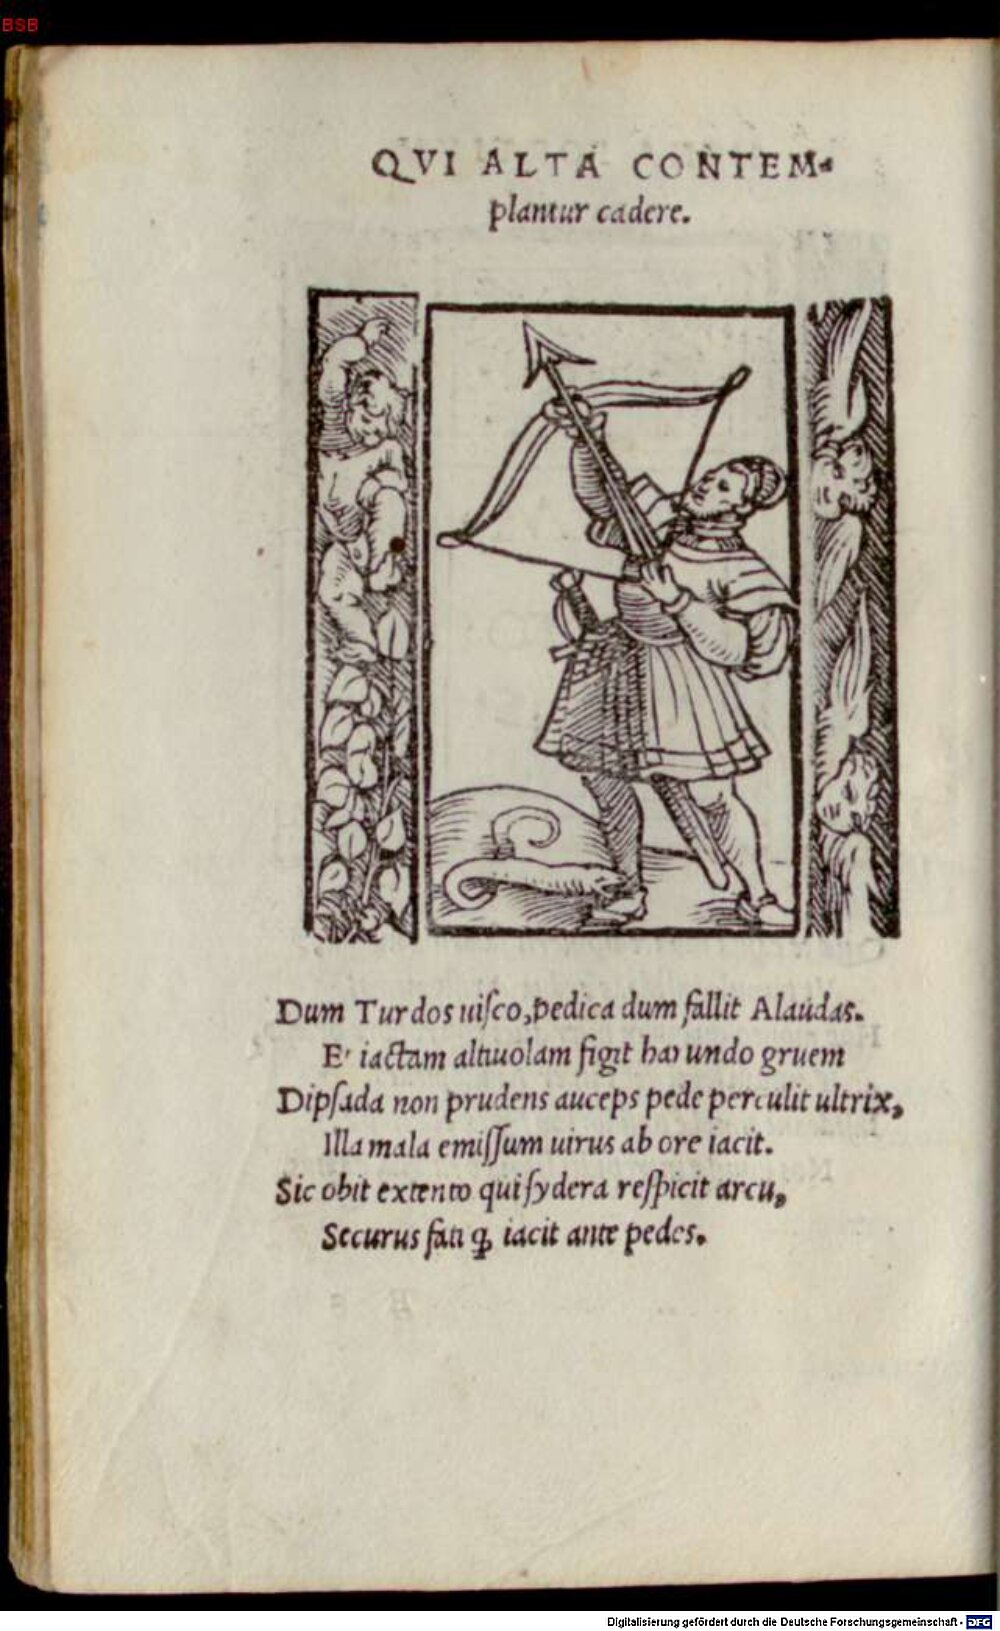 BSB
QVI ALTA CONTEM-
plantur cadere.
Dum Turdos uiſco, pedica dum fallit Alaudas.
Et iactam altiuolam figit harundo gruem
Dipſada non prudens auceps pede perculit ultrix,
Illa mala emiſſum uirus ab ore iacit.
Sic obit extento qui ſydera reſpicit arcu,
Securus fati qꝫ iacit ante pedes.
Digitalisierung gefördert durch die Deutsche Forschungsgemeinschaft - DFG